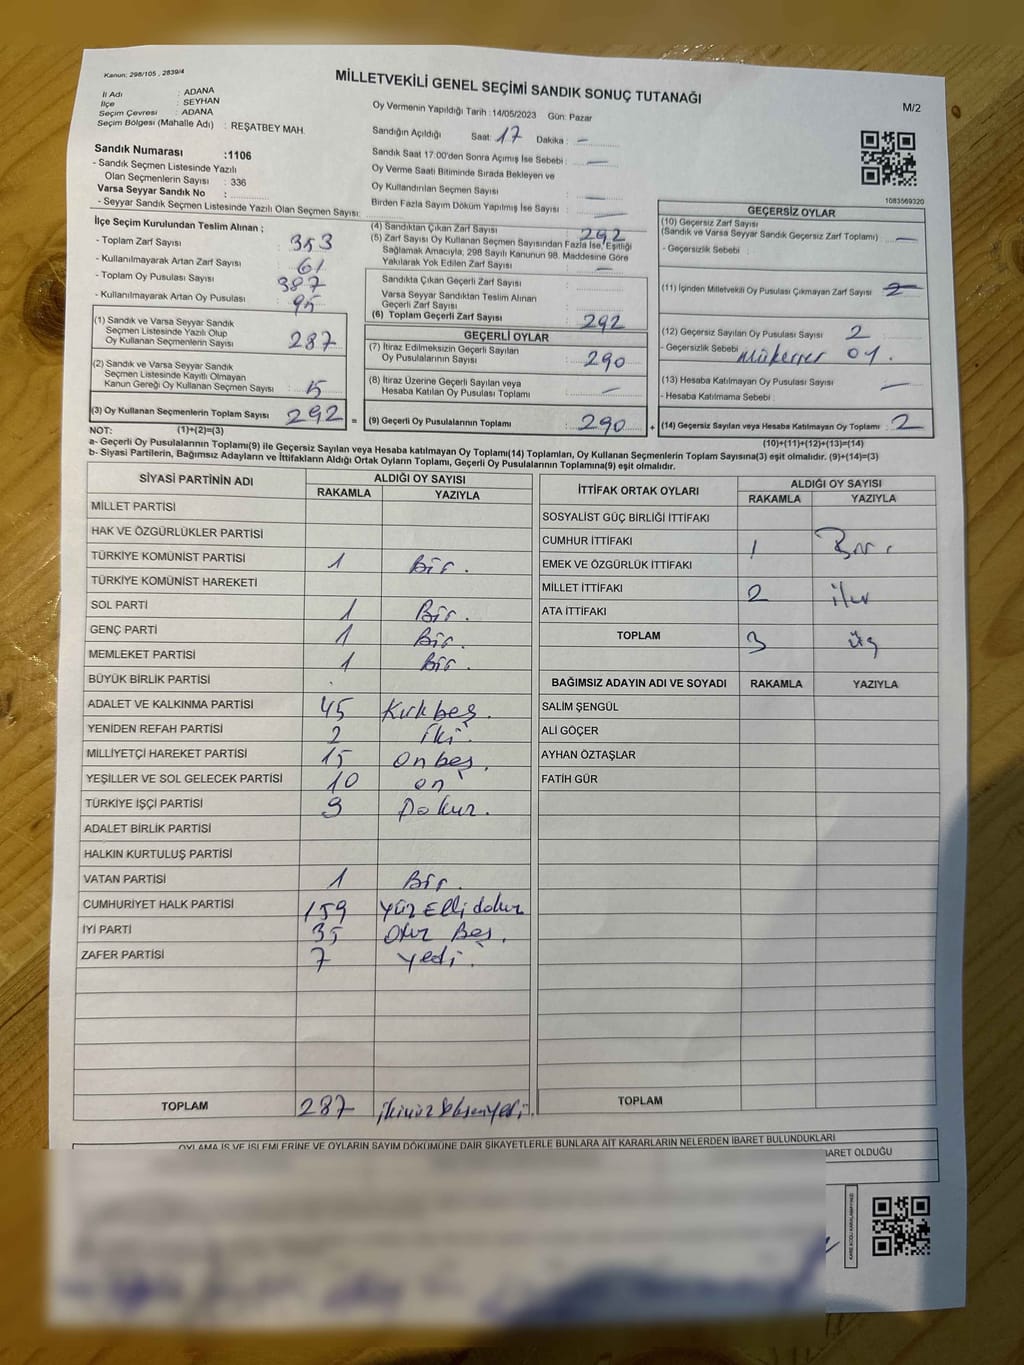 Kanun: 298/105 , 2839/4
MİLLETVEKİLİ GENEL SEÇİMİ SANDIK SONUÇ TUTANAĞI
M/2
İl Adı : ADANA
İlçe : SEYHAN
Seçim Çevresi : ADANA
Seçim Bölgesi (Mahalle Adı) : REŞATBEY MAH.
Sandık Numarası :1106
- Sandık Seçmen Listesinde Yazılı
Olan Seçmenlerin Sayısı : 336
Varsa Seyyar Sandık No :
- Seyyar Sandık Seçmen Listesinde Yazılı Olan Seçmen Sayısı:
Oy Vermenin Yapıldığı Tarih : 14/05/2023 Gün: Pazar
Sandığın Açıldığı Saat: 17 Dakika : –
Sandık Saat 17.00'den Sonra Açılmış İse Sebebi : –
Oy Verme Saati Bitiminde Sırada Bekleyen ve
Oy Kullandırılan Seçmen Sayısı : –
Birden Fazla Sayım Döküm Yapılmış İse Sayısı : –
1083569320
İlçe Seçim Kurulundan Teslim Alınan ;
- Toplam Zarf Sayısı : 353
- Kullanılmayarak Artan Zarf Sayısı : 61
- Toplam Oy Pusulası Sayısı : 387
- Kullanılmayarak Artan Oy Pusulası : 95
(1) Sandık ve Varsa Seyyar Sandık
Seçmen Listesinde Yazılı Olup
Oy Kullanan Seçmenlerin Sayısı : 287
(2) Sandık ve Varsa Seyyar Sandık
Seçmen Listesinde Kayıtlı Olmayan
Kanun Gereği Oy Kullanan Seçmen Sayısı : 5
(3) Oy Kullanan Seçmenlerin Toplam Sayısı : 292 =
(4) Sandıktan Çıkan Zarf Sayısı : 292
(5) Zarf Sayısı Oy Kullanan Seçmen Sayısından Fazla İse, Eşitliği
Sağlamak Amacıyla, 298 Sayılı Kanunun 98. Maddesine Göre
Yakılarak Yok Edilen Zarf Sayısı : –
Sandıkta Çıkan Geçerli Zarf Sayısı :
Varsa Seyyar Sandıktan Teslim Alınan
Geçerli Zarf Sayısı :
(6) Toplam Geçerli Zarf Sayısı : 292
GEÇERLİ OYLAR
(7) İtiraz Edilmeksizin Geçerli Sayılan
Oy Pusulalarının Sayısı : 290
(8) İtiraz Üzerine Geçerli Sayılan veya
Hesaba Katılan Oy Pusulası Toplamı : –
(9) Geçerli Oy Pusulalarının Toplamı : 290 +
GEÇERSİZ OYLAR
(10) Geçersiz Zarf Sayısı
(Sandık ve Varsa Seyyar Sandık Geçersiz Zarf Toplamı) : –
- Geçersizlik Sebebi :
(11) İçinden Milletvekili Oy Pusulası Çıkmayan Zarf Sayısı : 2
(12) Geçersiz Sayılan Oy Pusulası Sayısı : 2
- Geçersizlik Sebebi : Mükerrer oy.
(13) Hesaba Katılmayan Oy Pusulası Sayısı : –
- Hesaba Katılmama Sebebi :
(14) Geçersiz Sayılan veya Hesaba Katılmayan Oy Toplamı : 2
NOT: (1)+(2)=(3)
(10)+(11)+(12)+(13)=(14)
a- Geçerli Oy Pusulalarının Toplamı(9) ile Geçersiz Sayılan veya Hesaba katılmayan Oy Toplamı(14) Toplamları, Oy Kullanan Seçmenlerin Toplam Sayısına(3) eşit olmalıdır. (9)+(14)=(3)
b- Siyasi Partilerin, Bağımsız Adayların ve İttifakların Aldığı Ortak Oyların Toplamı, Geçerli Oy Pusulalarının Toplamına(9) eşit olmalıdır.
SİYASİ PARTİNİN ADI ALDIĞI OY SAYISI
RAKAMLA YAZIYLA
MİLLET PARTİSİ
HAK VE ÖZGÜRLÜKLER PARTİSİ
TÜRKİYE KOMÜNİST PARTİSİ 1 Bir.
TÜRKİYE KOMÜNİST HAREKETİ
SOL PARTİ 1 Bir.
GENÇ PARTİ 1 Bir.
MEMLEKET PARTİSİ 1 Bir.
BÜYÜK BİRLİK PARTİSİ
ADALET VE KALKINMA PARTİSİ 45 Kırkbeş.
YENİDEN REFAH PARTİSİ 2 iki.
MİLLİYETÇİ HAREKET PARTİSİ 15 onbeş.
YEŞİLLER VE SOL GELECEK PARTİSİ 10 on
TÜRKİYE İŞÇİ PARTİSİ 9 Dokuz.
ADALET BİRLİK PARTİSİ
HALKIN KURTULUŞ PARTİSİ
VATAN PARTİSİ 1 Bir.
CUMHURİYET HALK PARTİSİ 159 Yüz Elli dokuz
İYİ PARTİ 35 Otuz Beş.
ZAFER PARTİSİ 7 Yedi.
TOPLAM 287 ikiyüz Seksenyedi.
İTTİFAK ORTAK OYLARI ALDIĞI OY SAYISI
RAKAMLA YAZIYLA
SOSYALİST GÜÇ BİRLİĞİ İTTİFAKI
CUMHUR İTTİFAKI 1 Bir.
EMEK VE ÖZGÜRLÜK İTTİFAKI
MİLLET İTTİFAKI 2 iki
ATA İTTİFAKI
TOPLAM 3 üç
BAĞIMSIZ ADAYIN ADI VE SOYADI RAKAMLA YAZIYLA
SALİM ŞENGÜL
ALİ GÖÇER
AYHAN ÖZTAŞLAR
FATİH GÜR
TOPLAM
OYLAMA İŞ VE İŞLEMLERİNE VE OYLARIN SAYIM DÖKÜMÜNE DAİR ŞİKAYETLERLE BUNLARA AİT KARARLARIN NELERDEN İBARET BULUNDUKLARI
BARET OLDUĞU